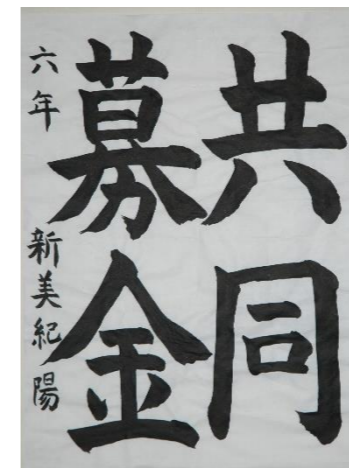 共同
募金
六年 新美紀陽